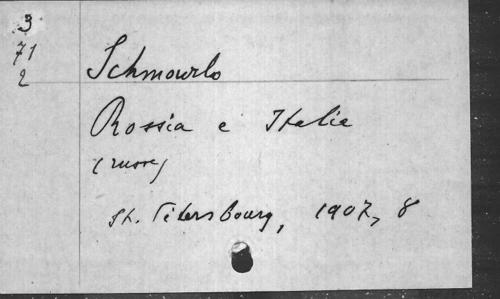 3
71
2
Schmourlo
Rossia e Italia
(russe)
St. Petersbourg, 1907, 8